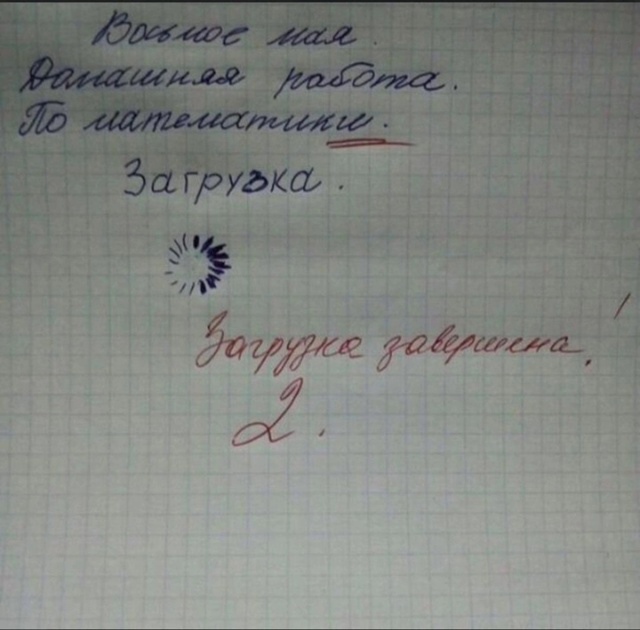 Восьмое мая.
Домашняя работа.
По математики.
Загрузка.
Загрузка завершена!
2.